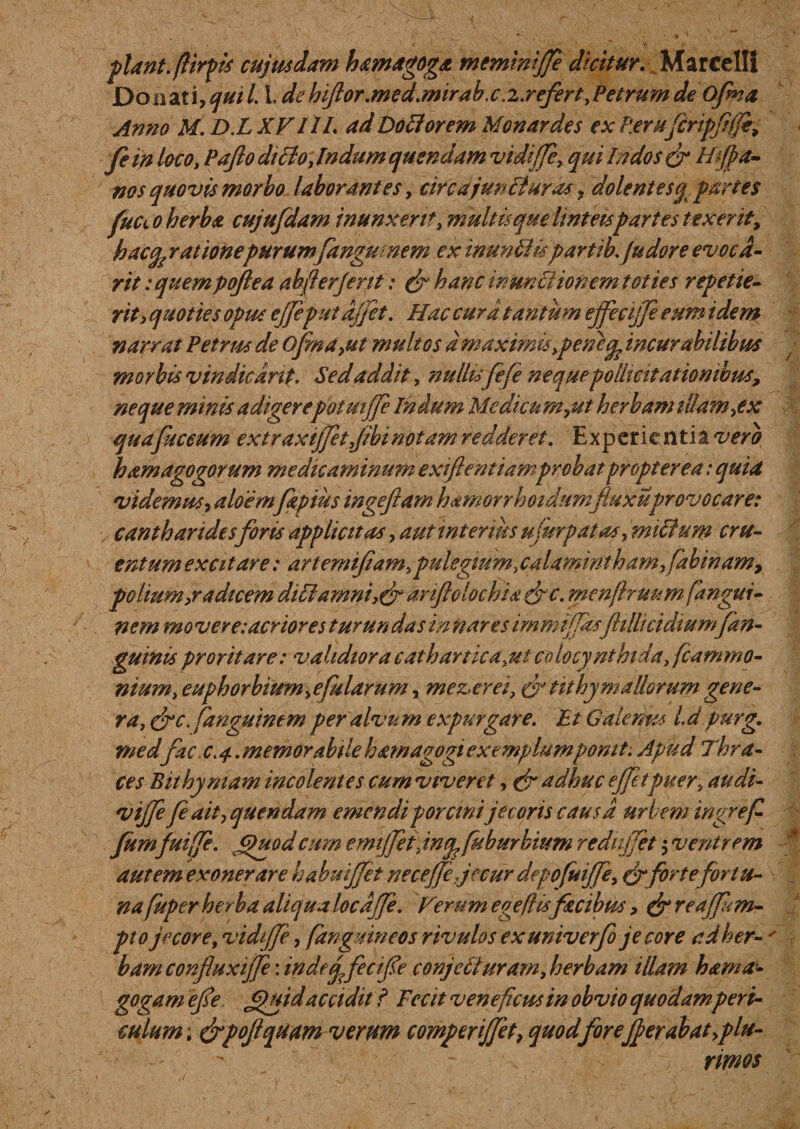 plant. ſtirpis cujusdam hæmagogæ meminiſſe dicitur. Marcelli
Donati, qui l. 1. de hiſtor. med. mirab. c. 2. refert, Petrum de Oſma
Anno M. D. LXVIII. ad Doctorem Monardes ex Peru ſcripſiſſe,
ſe in loco, Paſto dicto, Indum quendam vidiſſe, qui Indos & Hiſpa-
nos quovis morbo laborantes, circa juncturas, dolentesq; partes
ſucco herbæ cujuſdam inunxerit, multisque linteis partes texerit,
hacq; ratione purum ſanguinem ex inunctis partib. ſudore evocâ-
rit: quem poſtea abſterſerit: & hanc inunctionem toties repetie-
rit, quoties opus eſſe putâſſet. Hac curâ tantùm effeciſſe eum idem
narrat Petrus de Oſma, ut multos à maximis, peneq; incurabilibus
morbis vindicârit. Sed addit, nullis ſeſe neque pollicitationibus,
neque minis adigere potuiſſe Indum Medicum, ut herbam illam, ex
qua ſuccum extraxiſſet, ſibi notam redderet. Experientia verò
hæmagogorum medicaminum exiſtentiam probat propterea: quia
videmus, aloëm ſæpiùs ingeſtam hæmorrhoidum fluxũ provocare:
cantharides foris applicitas, aut interiùs uſurpatas, mictum cru-
entum excitare: artemiſiam, pulegium, calamintham, ſabinam,
polium, radicem dictamni, & ariſtolochiæ &c. menſtruum ſangui-
nem movere: acriores turundas in nares immiſſas ſtillicidium ſan-
guinis proritare: validiora cathartica, ut colocynthida, ſcammo-
nium, euphorbium, eſularum, mezerei, & tithymallorum gene-
ra, &c. ſanguinem per alvum expurgare. Et Galenus l. d purg.
med fac. c. 4. memorabile hæmagogi exemplum ponit: Apud Thra-
ces Bithyniam incolentes cum viveret, & adhuc eſſet puer, audi-
viſſe ſe ait, quendam emendi porcini jecoris causâ urbem ingreſ-
ſum fuiſſe. Quod cum emiſſet, inq; ſuburbium rediiſſet; ventrem
autem exonerare habuiſſet neceſſe, jecur depoſuiſſe, & forte fortu-
na ſuper herba aliqua locâſſe. Verum egeſtis fæcibus, & reaſſum-
pto jecore, vidiſſe, ſanguineos rivulos ex univerſo jecore ad her-
bam confluxiſſe: indeq; feciſſe conjecturam, herbam illam hæma-
gogam eſſe. Quid accidit? Fecit veneficus in obvio quodam peri-
culum; & poſtquam verum comperiſſet, quod fore ſperabat, plu-
rimos